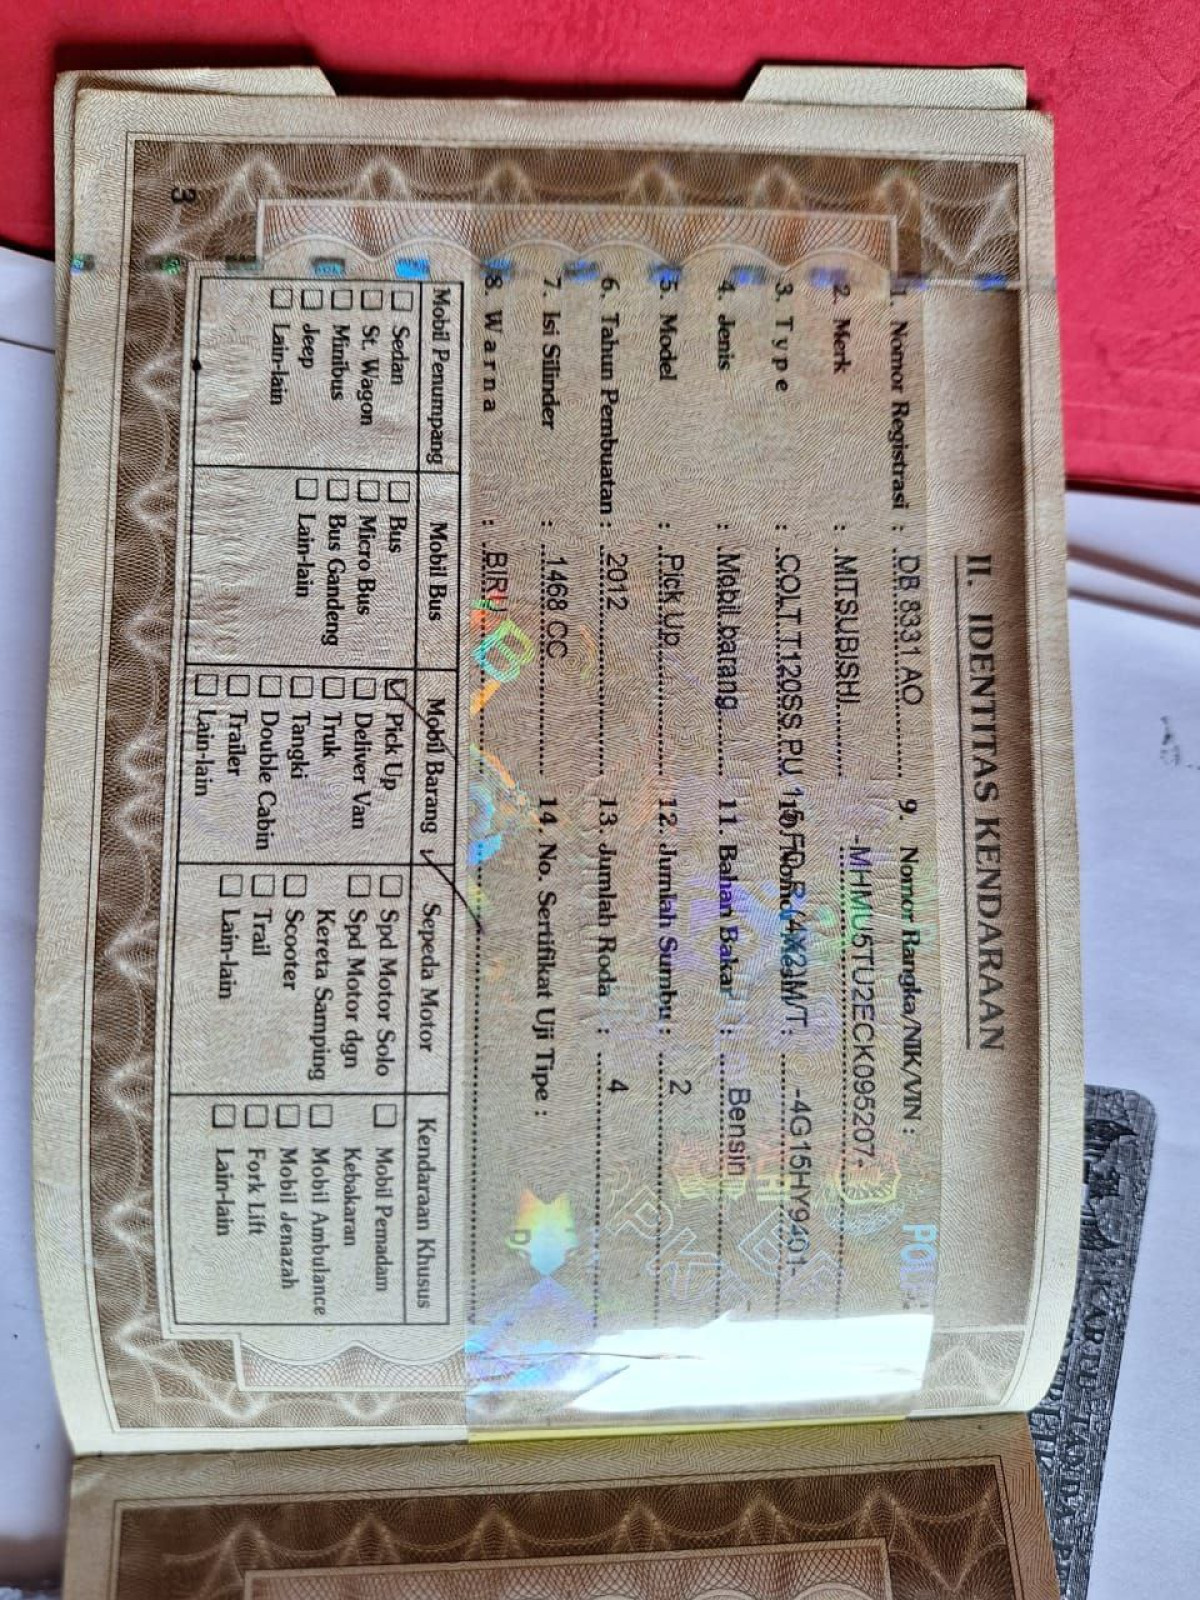 II. IDENTITAS KENDARAAN
1. Nomor Registrasi : DB 8331 AO
2. Merk : MITSUBISHI
3. Type : COLT T120SS PU 1.5 FD-R (4X2) M/T
4. Jenis : Mobil barang
5. Model : Pick Up
6. Tahun Pembuatan : 2012
7. Isi Silinder : 1468 CC
8. Warna : BIRU
9. Nomor Rangka/NIK/VIN :
-MHMU5TU2ECK095207-
: -4G15HY9401-
11. Bahan Bakar : Bensin
12. Jumlah Sumbu : 2
13. Jumlah Roda : 4
14. No. Sertifikat Uji Tipe :
Mobil Penumpang
Sedan
St. Wagon
Minibus
Jeep
Lain-lain
Mobil Bus
Bus
Micro Bus
Bus Gandeng
Lain-lain
Mobil Barang
Pick Up
Deliver Van
Truk
Tangki
Double Cabin
Trailer
Lain-lain
Sepeda Motor
Spd Motor Solo
Spd Motor dgn
Kereta Samping
Scooter
Trail
Lain-lain
Kendaraan Khusus
Mobil Pemadam
Kebakaran
Mobil Ambulance
Mobil Jenazah
Fork Lift
Lain-lain
3
KARTU TANDA